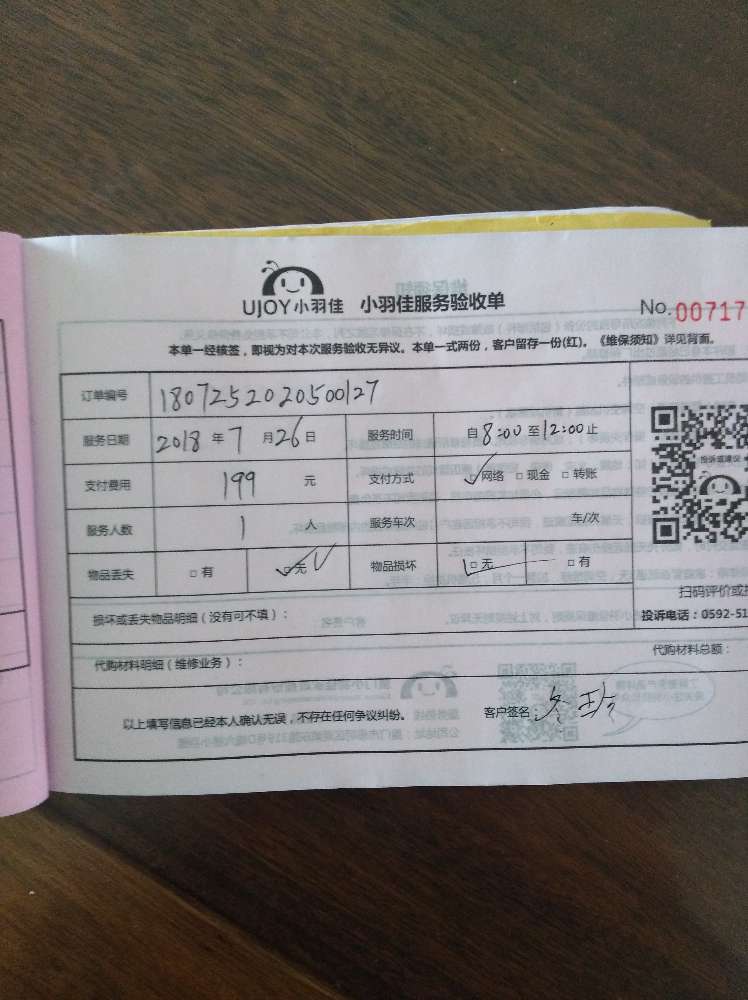 UJOY小羽佳 小羽佳服务验收单 No.00717
本单一经核签，即视为对本次服务验收无异议。本单一式两份，客户留存一份(红)。《维保须知》详见背面。
订单编号 180725202050127
服务日期 2018 年 7 月 26 日 服务时间 自 8:00 至 12:00 止
支付费用 199 元 支付方式 ☑网络 □现金 □转账
投诉或建议
服务人数 1 人 服务车次 车/次
物品丢失 □有 ☑无 物品损坏 ☑无 □有
扫码评价或
损坏或丢失物品明细（没有可不填）：
投诉电话：0592-51
代购材料明细（维修业务）： 代购材料总额：
以上填写信息已经本人确认无误，不存在任何争议纠纷。 客户签名